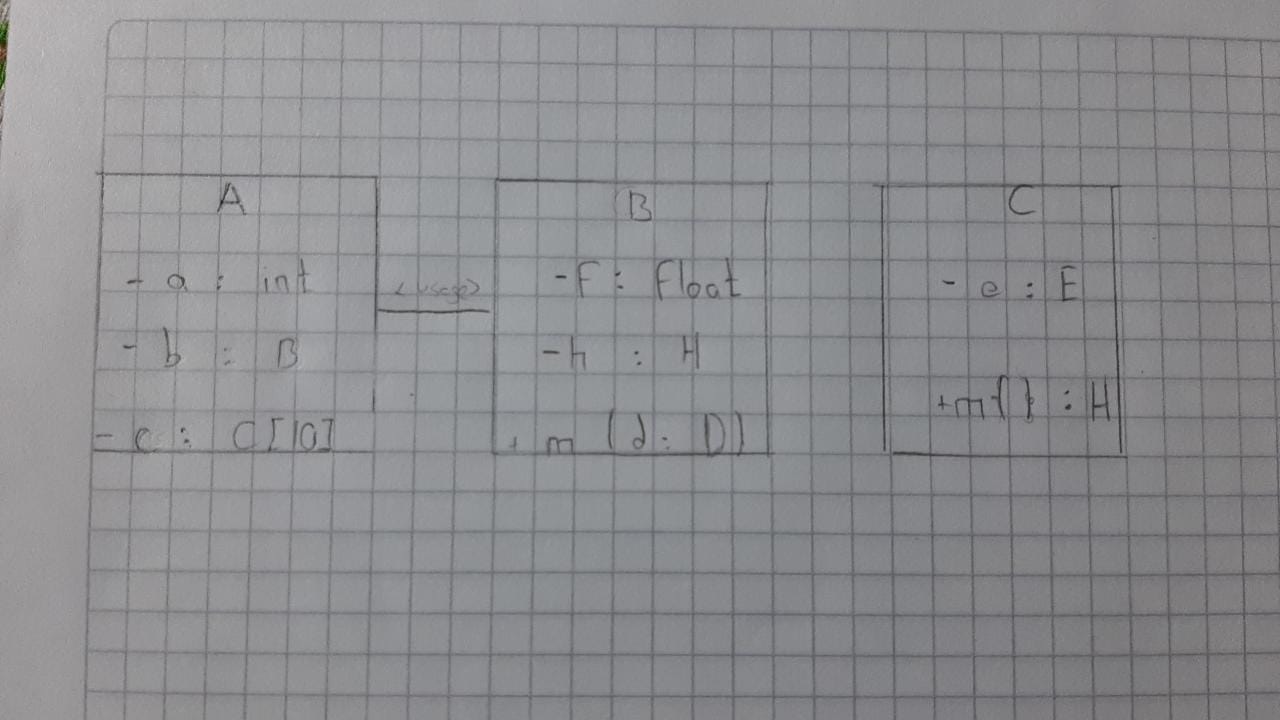 A
- a : int
- b : B
- c : C[10]
<usage>
B
- F : Float
- h : H
+ m (d : D)
C
- e : E
+m() : H